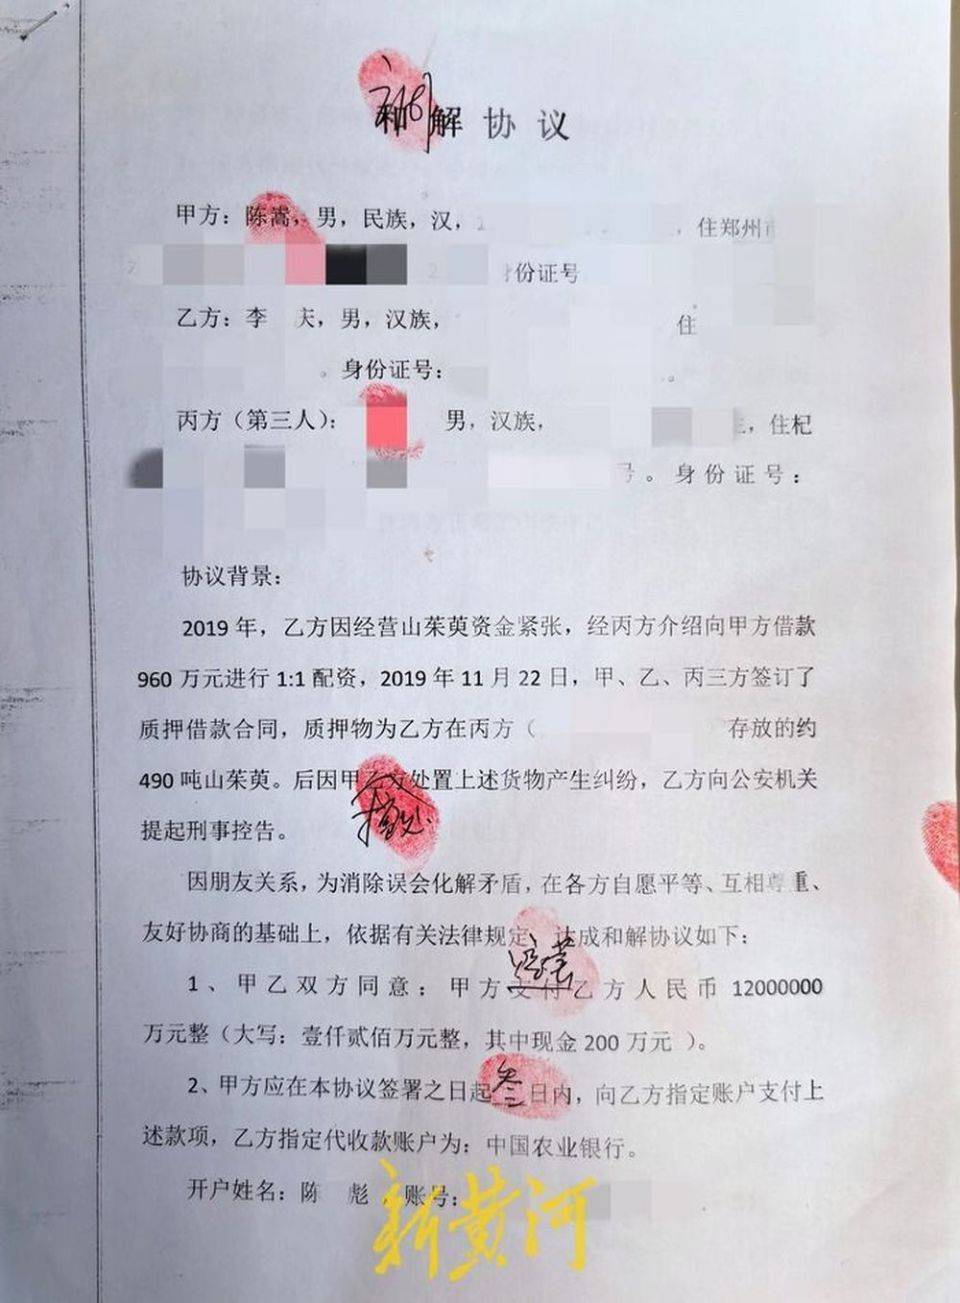 和解协议
甲方：陈嵩，男，民族，汉，，住郑州
份证号
乙方：李 庆，男，汉族， 住
。身份证号：
丙方（第三人）： 男，汉族， ，住杞
。身份证号：
协议背景：
2019年，乙方因经营山茱萸资金紧张，经丙方介绍向甲方借款
960万元进行1:1配资，2019年11月22日，甲、乙、丙三方签订了
质押借款合同，质押物为乙方在丙方（ 存放的约
490吨山茱萸。后因甲乙方处置上述货物产生纠纷，乙方向公安机关
提起刑事控告。
因朋友关系，为消除误会化解矛盾，在各方自愿平等、互相尊重、
友好协商的基础上，依据有关法律规定，达成和解协议如下：
退赔
1、甲乙双方同意：甲方支付乙方人民币12000000
万元整（大写：壹仟贰佰万元整，其中现金200万元）。
2、甲方应在本协议签署之日起叁日内，向乙方指定账户支付上
述款项，乙方指定代收款账户为：中国农业银行。
开户姓名：陈 彪 账号：
新黄河